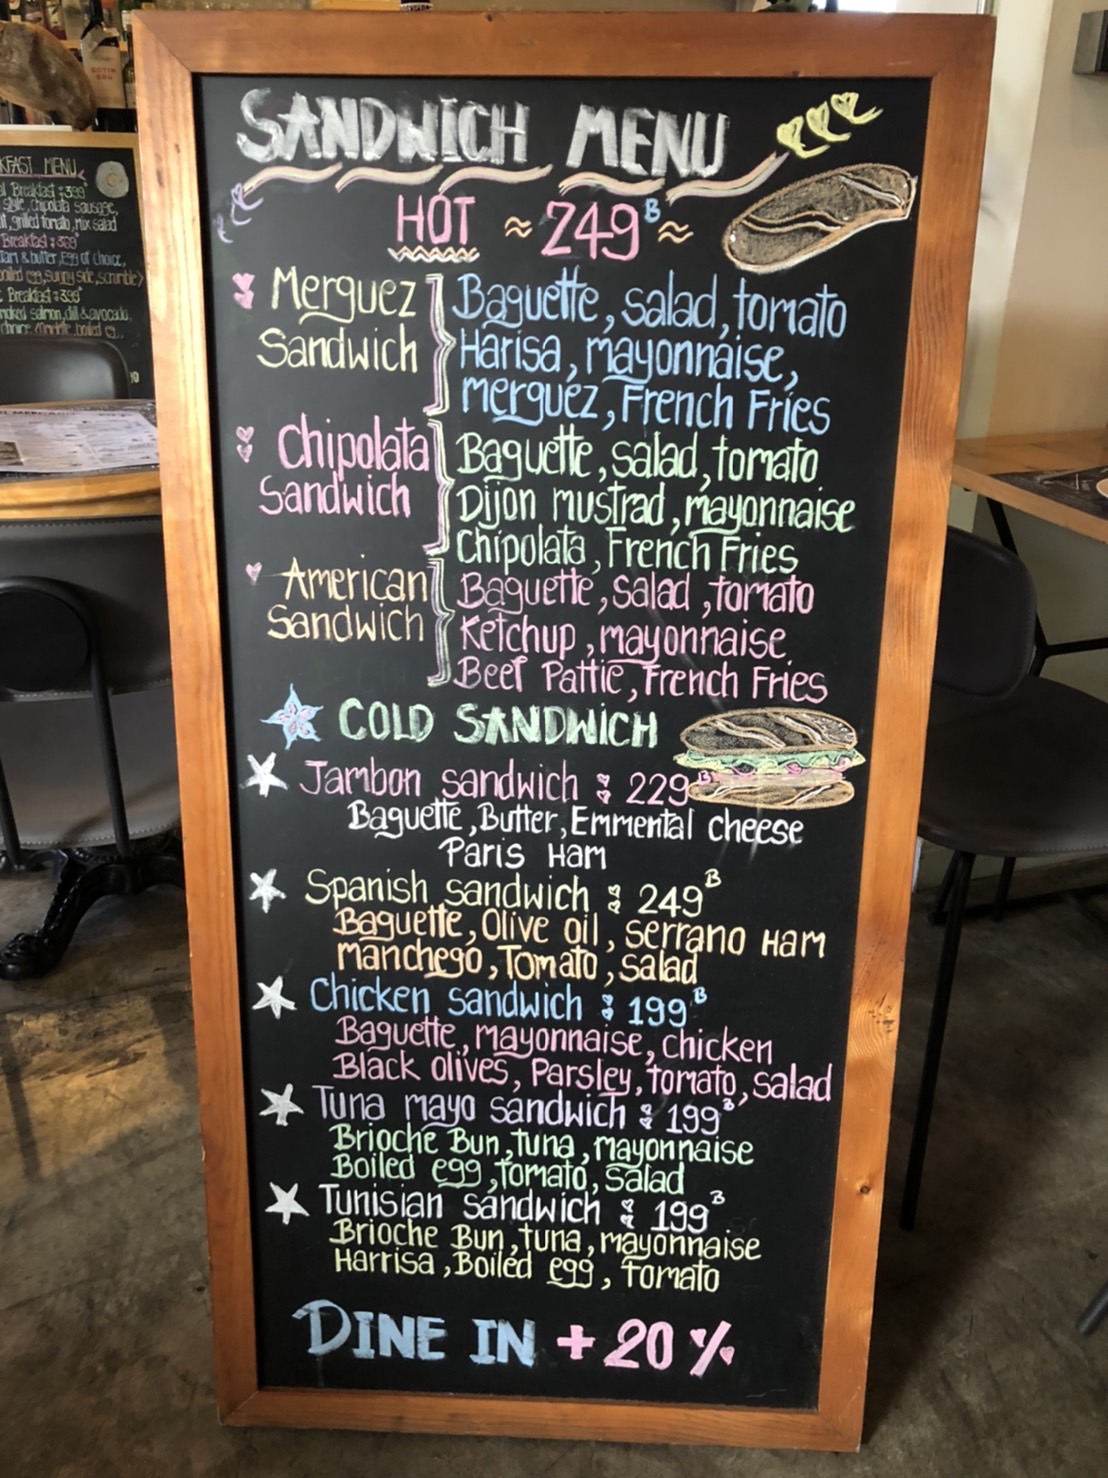 SANDWICH MENU
HOT ≈ 249B ≈
Merguez Sandwich
Baguette, salad, tomato
Harisa, mayonnaise,
merguez, French Fries
Chipolata Sandwich
Baguette, salad, tomato
Dijon mustrad, mayonnaise
Chipolata, French Fries
American Sandwich
Baguette, salad, tomato
Ketchup, mayonnaise
Beef Pattie, French Fries
COLD SANDWICH
Jambon sandwich : 229B
Baguette, Butter, Emmental cheese
Paris Ham
Spanish sandwich : 249B
Baguette, Olive oil, serrano Ham
Manchego, Tomato, salad
Chicken sandwich : 199B
Baguette, mayonnaise, chicken
Black olives, Parsley, tomato, salad
Tuna mayo sandwich : 199B
Brioche Bun, tuna, mayonnaise
Boiled egg, tomato, salad
Tunisian sandwich : 199B
Brioche Bun, tuna, mayonnaise
Harrisa, Boiled egg, Tomato
DINE IN + 20 %
MENU
Breakfast : 399
style, chipolata sausage,
grilled tomato, mix salad
Breakfast : 369
& butter, egg of choice,
boiled egg, sunny side, scramble)
Breakfast : 399
salmon, dill & avocado,